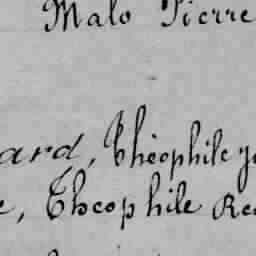 Malo Pierre
ard, Théophile
e, Theophile